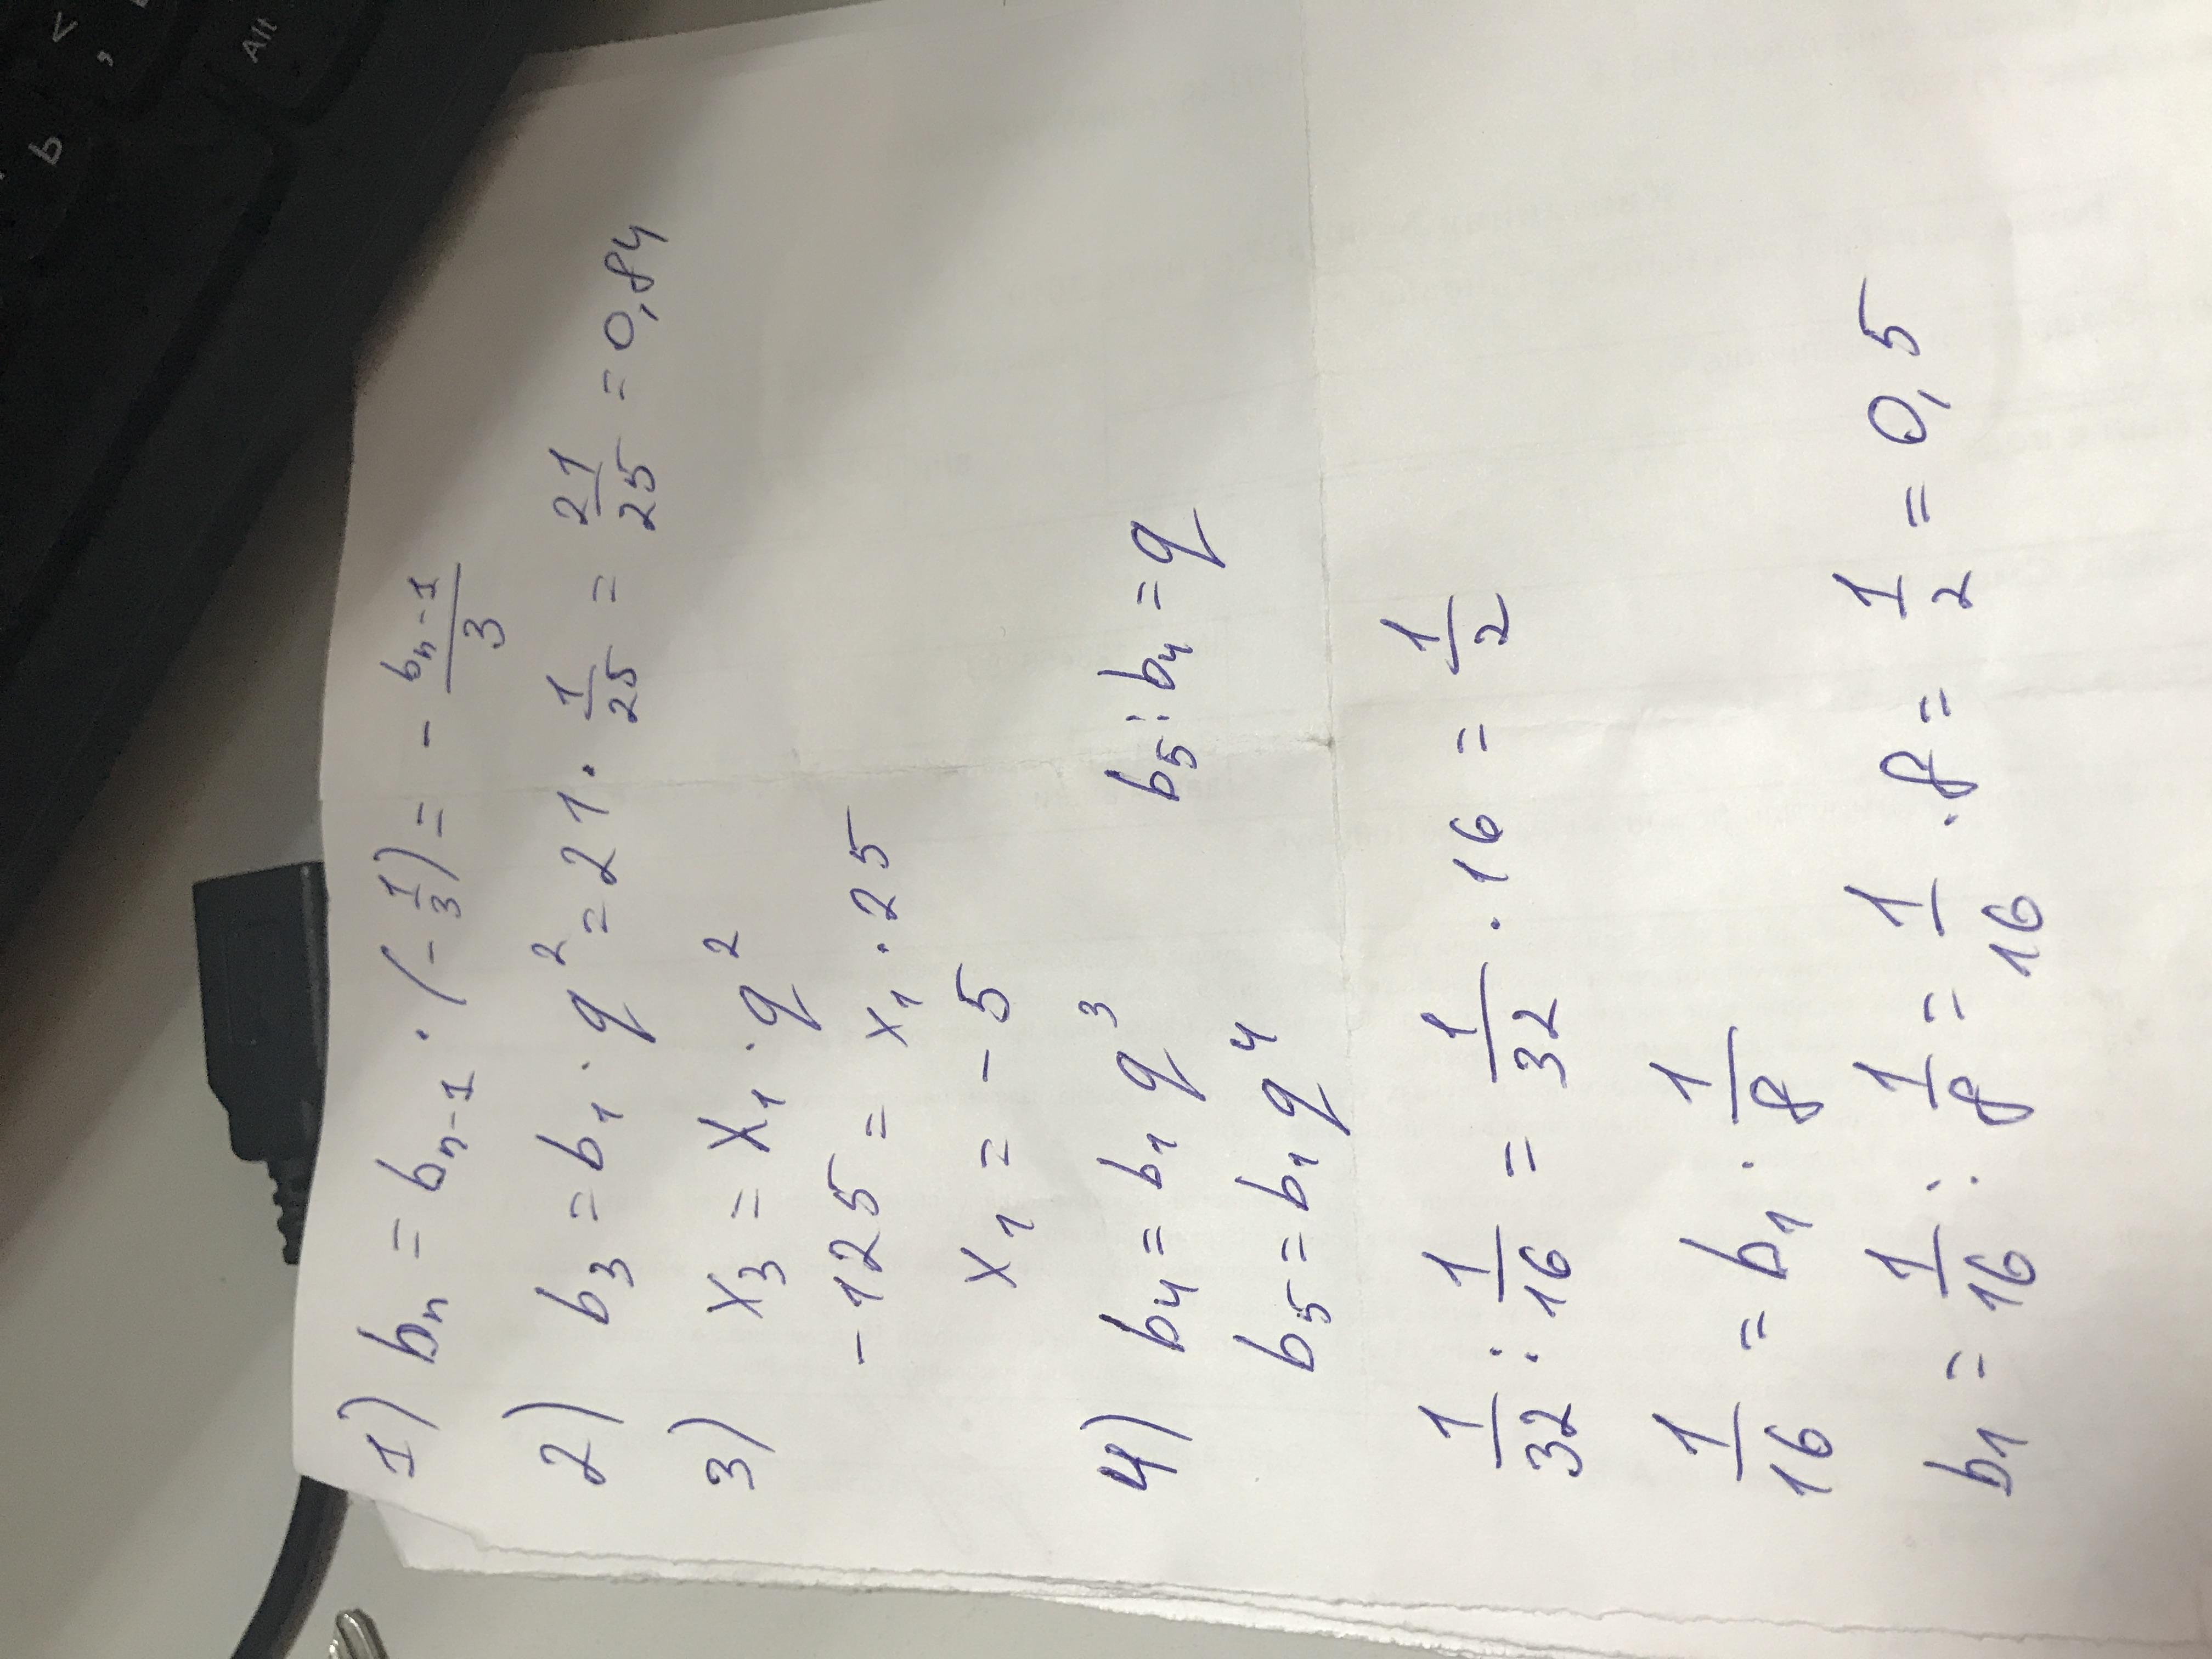 1) bₙ = bₙ₋₁ · (-1/3) = - bₙ₋₁/3
2) b₃ = b₁ · q² = 21 · 1/25 = 21/25 = 0,84
3) x₃ = x₁ · q²
-125 = x₁ · 25
x₁ = -5
4) b₄ = b₁ q³ b₅ : b₄ = q
b₅ = b₁ q⁴
1/32 : 1/16 = 1/32 · 16 = 1/2
1/16 = b₁ · 1/8
b₁ = 1/16 : 1/8 = 1/16 · 8 = 1/2 = 0,5
Alt
b
<
,